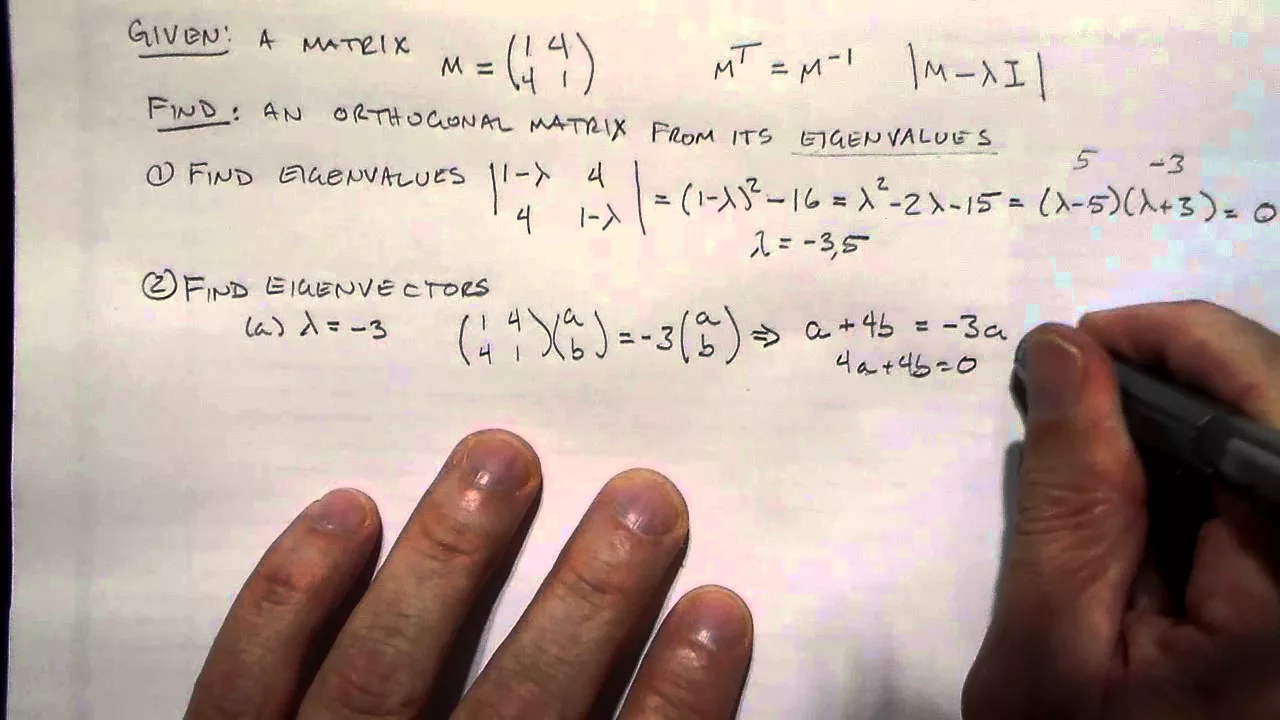 GIVEN: A MATRIX M = (1 4 4 1) Mᵀ = M⁻¹ |M - λI|
FIND: AN ORTHOGONAL MATRIX FROM ITS EIGENVALUES
5 -3
① FIND EIGENVALUES |1-λ 4 4 1-λ| = (1-λ)² - 16 = λ² - 2λ - 15 = (λ-5)(λ+3) = 0
λ = -3,5
② FIND EIGENVECTORS
(a) λ = -3 (1 4 4 1)(a b) = -3(a b) ⇒ a + 4b = -3a
4a + 4b = 0